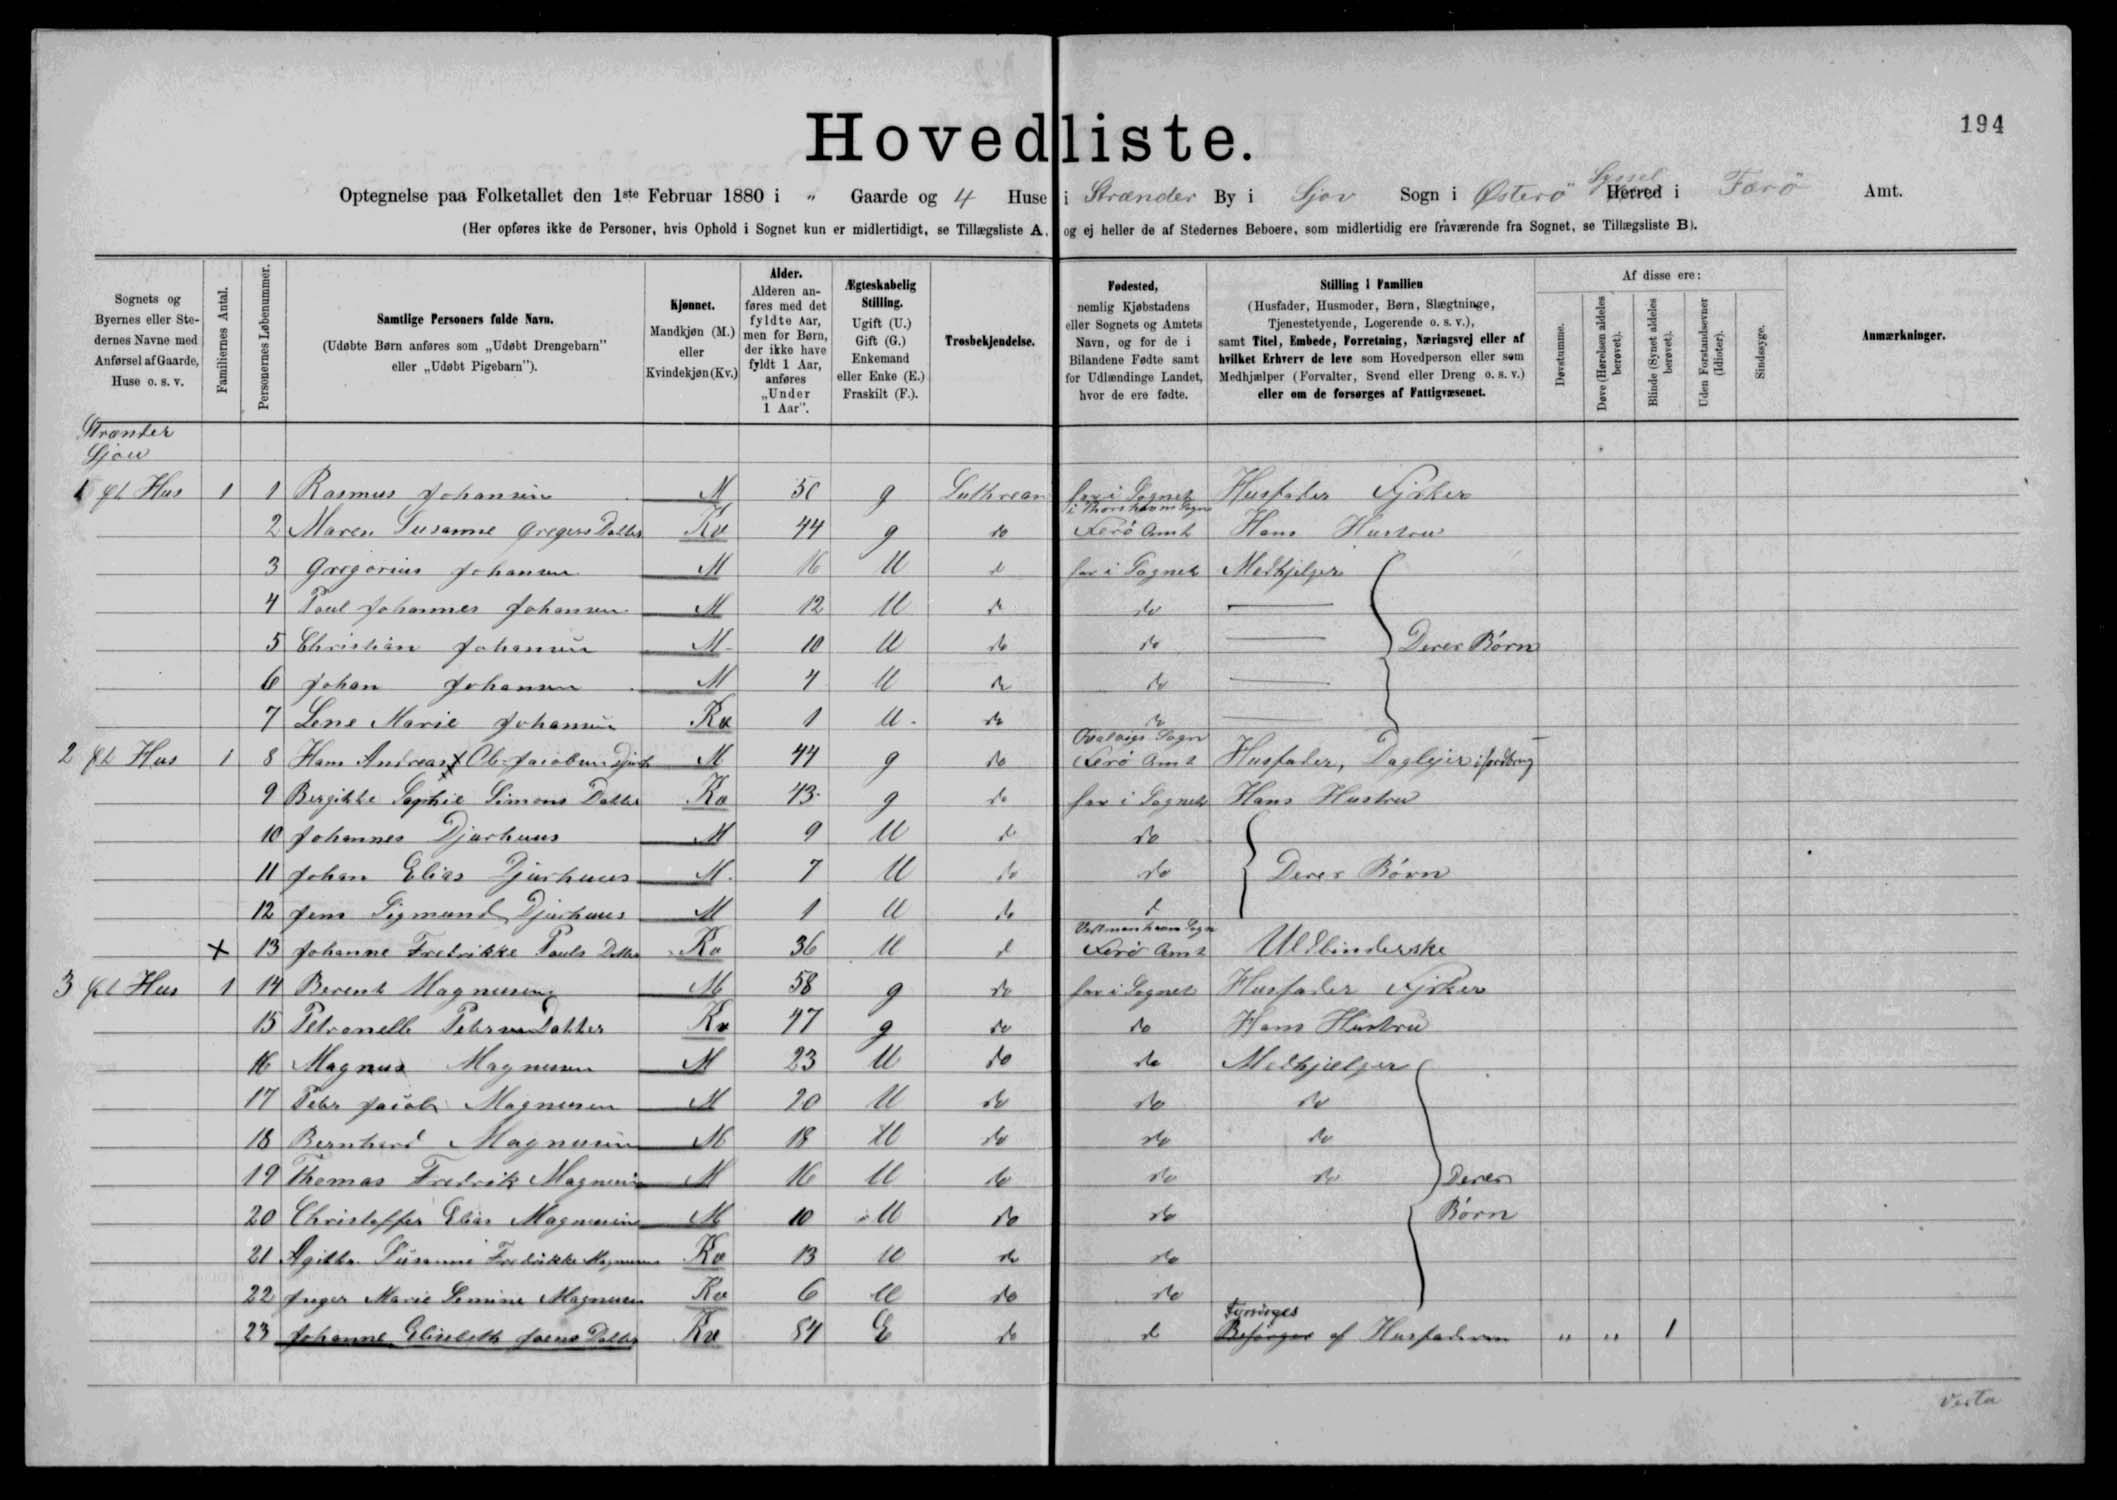 194
Hovedliste.
Optegnelse paa Folketallet den 1ste Februar 1880 i " Gaarde og 4 Huse i Strænder By i Sjov Sogn i Østerø Syssel Herred i Færø Amt.
(Her opføres ikke de Personer, hvis Ophold i Sognet kun er midlertidigt, se Tillægsliste A, og ej heller de af Stedernes Beboere, som midlertidig ere fraværende fra Sognet, se Tillægsliste B).
Sognets og Byernes eller Stedernes Navne med Anførsel af Gaarde, Huse o. s. v.
Familiernes Antal.
Personernes Løbenummer.
Samtlige Personers fulde Navn.
(Udøbte Børn anføres som „Udøbt Drengebarn" eller „Udøbt Pigebarn").
Kjønnet.
Mandkjøn (M.) eller Kvindekjøn (Kv.)
Alder.
Alderen anføres med det fyldte Aar, men for Børn, der ikke have fyldt 1 Aar, anføres „Under 1 Aar".
Ægteskabelig Stilling.
Ugift (U.) Gift (G.) Enkemand eller Enke (E.) Fraskilt (F.).
Trosbekjendelse.
Fødested,
nemlig Kjøbstadens eller Sognets og Amtets Navn, og for de i Bilandene Fødte samt for Udlændinge Landet, hvor de ere fødte.
Stilling i Familien
(Husfader, Husmoder, Børn, Slægtninge, Tjenestetyende, Logerende o. s. v.), samt Titel, Embede, Forretning, Næringsvej eller af hvilket Erhverv de leve som Hovedperson eller som Medhjælper (Forvalter, Svend eller Dreng o. s. v.) eller om de forsørges af Fattigvæsenet.
Af disse ere:
Døvstumme.
Døve (Hørelsen aldeles berøvet).
Blinde (Synet aldeles berøvet).
Uden Forstandsevner (Idioter).
Sindssyge.
Anmærkninger.
Strænder
Sjov
1 Hus 1 1 Rasmus Johansen M 50 g Luthrean her i Sognet Husfader Fisker
2 Maren Susanne Gregers Datter Kv 44 g do i Thorshavns Sogn Færø Amt Hans Hustru
3 Gregorius Johansen M 16 U d her i Sognet Medhjelper
4 Poul Johannes Johansen M 12 U do do
5 Christian Johansen M 10 U do do Deres Børn
6 Johan Johansen M 4 U do do
7 Lene Marie Johansen Kv 1 U do do
2 Hus 1 8 Hans Andreas x Ole Jacobsen M 44 g do Qvalvigs Sogn Færø Amt Husfader, Daglejer i Jordbrug
9 Bergithe Sophie Simons Datter Kv 43 g do her i Sognet Hans Hustru
10 Johannes Djurhuus M 9 U d do
11 Johan Elias Djurhuus M 7 U do do Deres Børn
12 Jens Sigmund Djurhuus M 1 U do d
x 13 Johanne Fredrikke Pouls Datter Kv 36 U d Vestmanhavns Sogn Færø Amt Uldbinderske
3 Hus 1 14 Berent Magnusen M 58 g do her i Sognet Husfader Fisker
15 Petronelle Petersen Datter Kv 47 g do do Hans Hustru
16 Magnus Magnusen M 23 U do do Medhjælper
17 Peter Jacob Magnusen M 20 U do do do
18 Bernhard Magnusen M 18 U do do do
19 Thomas Fredrik Magnusen M 16 U do do do Deres
20 Christoffer Elias Magnusen M 10 U do do Børn
21 Susanne Fredrikke Magnusen Kv 13 U do do
22 Inger Marie Magnusen Kv 6 U do do
23 Johanne Elisabeth Joens Datter Kv 84 E do d Forsørges af Husfaderen " " 1
Verta